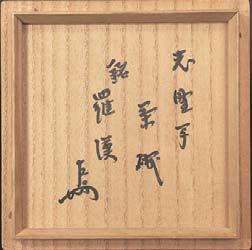 志野手
茶碗
銘 羅漢